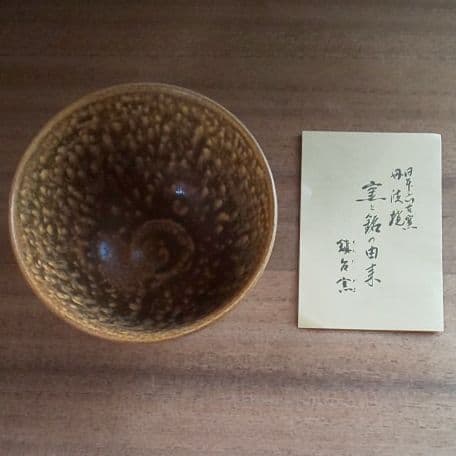 日本六古窯
丹波焼
窯と銘の由来